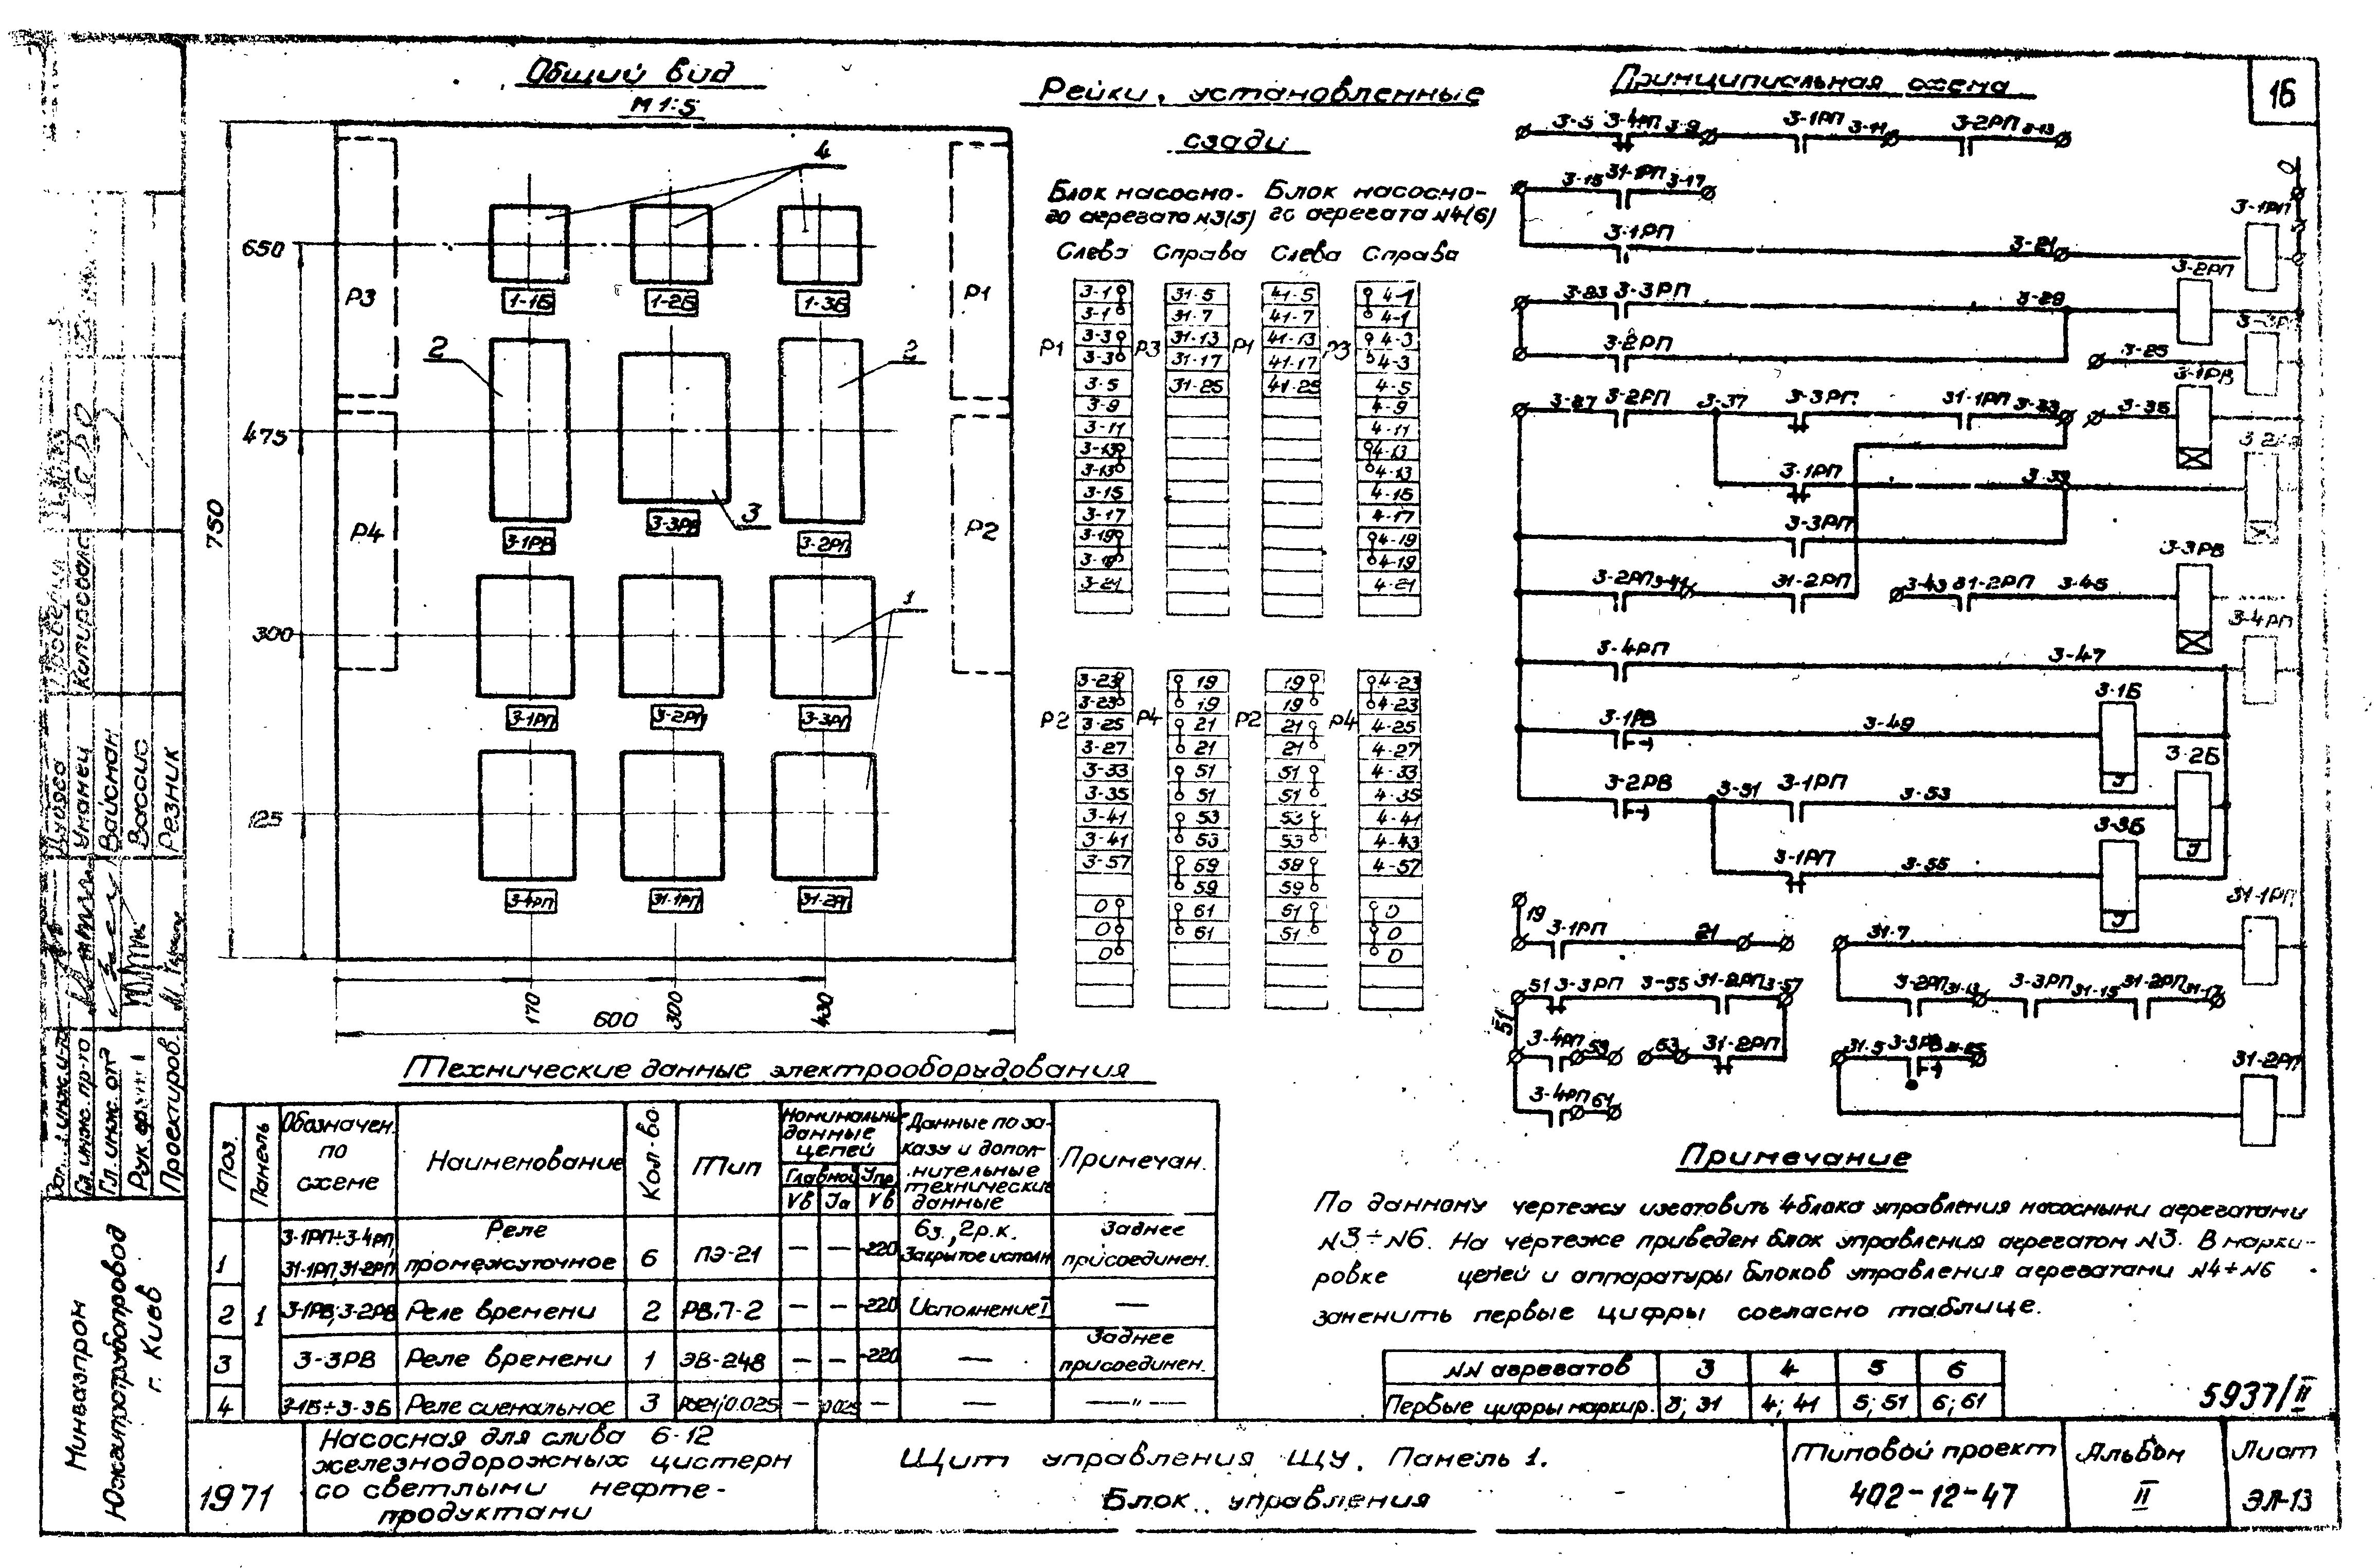 16
Общий вид
М 1:5
4
650
1-1Б
1-2Б
1-3Б
Р3
Р1
2
2
475
3
3-1РВ
3-3РВ
3-2РП
Р4
Р2
750
300
1
3-1РП
3-2РП
3-3РП
125
3-4РП
31-1РП
31-2РП
170
300
430
600
Рейки, установленные
сзади
Блок насосно-
го агрегата №3(5)
Блок насосно-
го агрегата №4(6)
Слева Справа Слева Справа
Р1 Р3 Р1 Р3
3-1 31-5 41-5 4-1
3-1 31-7 41-7 4-1
3-3 31-13 41-13 4-3
3-3 31-17 41-17 4-3
3-5 31-25 41-25 4-5
3-9 4-9
3-11 4-11
3-13 4-13
3-13 4-13
3-15 4-15
3-17 4-17
3-19 4-19
3-19 4-19
3-21 4-21
Р2 Р4 Р2 Р4
3-23 19 19 4-23
3-23 19 19 4-23
3-25 21 21 4-25
3-27 21 21 4-27
3-33 51 51 4-33
3-35 51 51 4-35
3-41 53 53 4-41
3-41 53 53 4-43
3-57 59 59 4-57
59 59
0 61 61 0
0 61 61 0
0 0
Принципиальная схема
3-5 3-4РП 3-9 3-1РП 3-11 3-2РП 3-13
3-15 31-1РП 3-17
0
3-1РП
3-1РП 3-21
3-2РП
3-23 3-3РП 3-29
3-2РП 3-25
3-1РВ
3-27 3-2РП 3-37 3-3РП 31-1РП 3-33 3-35
3-1РП 3-39
3-3РП
3-3РВ
3-2РП 3-41 31-2РП 3-43 31-2РП 3-45
3-4РП
3-4РП 3-47
3-1Б
3-1РВ 3-49
3-2Б
3-2РВ 3-51 3-1РП 3-53
3-3Б
3-1РП 3-55
31-1РП
19 3-1РП 21 31-7
51 3-3РП 3-55 31-2РП 3-57 3-2РП 31-13 3-3РП 31-15 31-2РП 31-17
51
3-4РП 59 53 31-2РП 31-5 3-3РВ
31-2РП
3-4РП 61
Технические данные электрооборудования
Поз. Панель Обозначен. по схеме Наименование Кол-во Тип Номинальные данные цепей Данные по заказу и дополнительные технические данные Примечан.
Главной Упр.
Vв Jа Vв
1 3-1РП÷3-4РП, 31-1РП, 31-2РП Реле промежуточное 6 ПЭ-21 — — ~220 6з., 2р.к. Закрытое исполн. Заднее присоединен.
2 1 3-1РВ, 3-2РВ Реле времени 2 РВ.П-2 — — ~220 Исполнение I —
3 3-3РВ Реле времени 1 ЭВ-248 — — ~220 — Заднее присоединен.
4 3-1Б÷3-3Б Реле сигнальное 3 0.025 — 0.025 — — — " —
Примечание
По данному чертежу изготовить 4 блока управления насосными агрегатами
№3÷№6. На чертеже приведен блок управления агрегатом №3. В марки-
ровке цепей и аппаратуры блоков управления агрегатами №4÷№6
заменить первые цифры согласно таблице.
NN агрегатов 3 4 5 6
Первые цифры маркир. 3; 31 4; 41 5; 51 6; 61
5937/II
1971
Насосная для слива 6-12
железнодорожных цистерн
со светлыми нефте-
продуктами
Щит управления ЩУ. Панель 1.
Блок управления
Типовой проект
402-12-47
Альбом
II
Лист
ЭЛ-13
Мингазпром
Южгипротрубопровод
г. Киев
Гл. инж. пр-та Уманец
Гл. инж. отд. Вайсман
Рук. групп Вассис
Проектиров. Резник
Проверил
Копировала